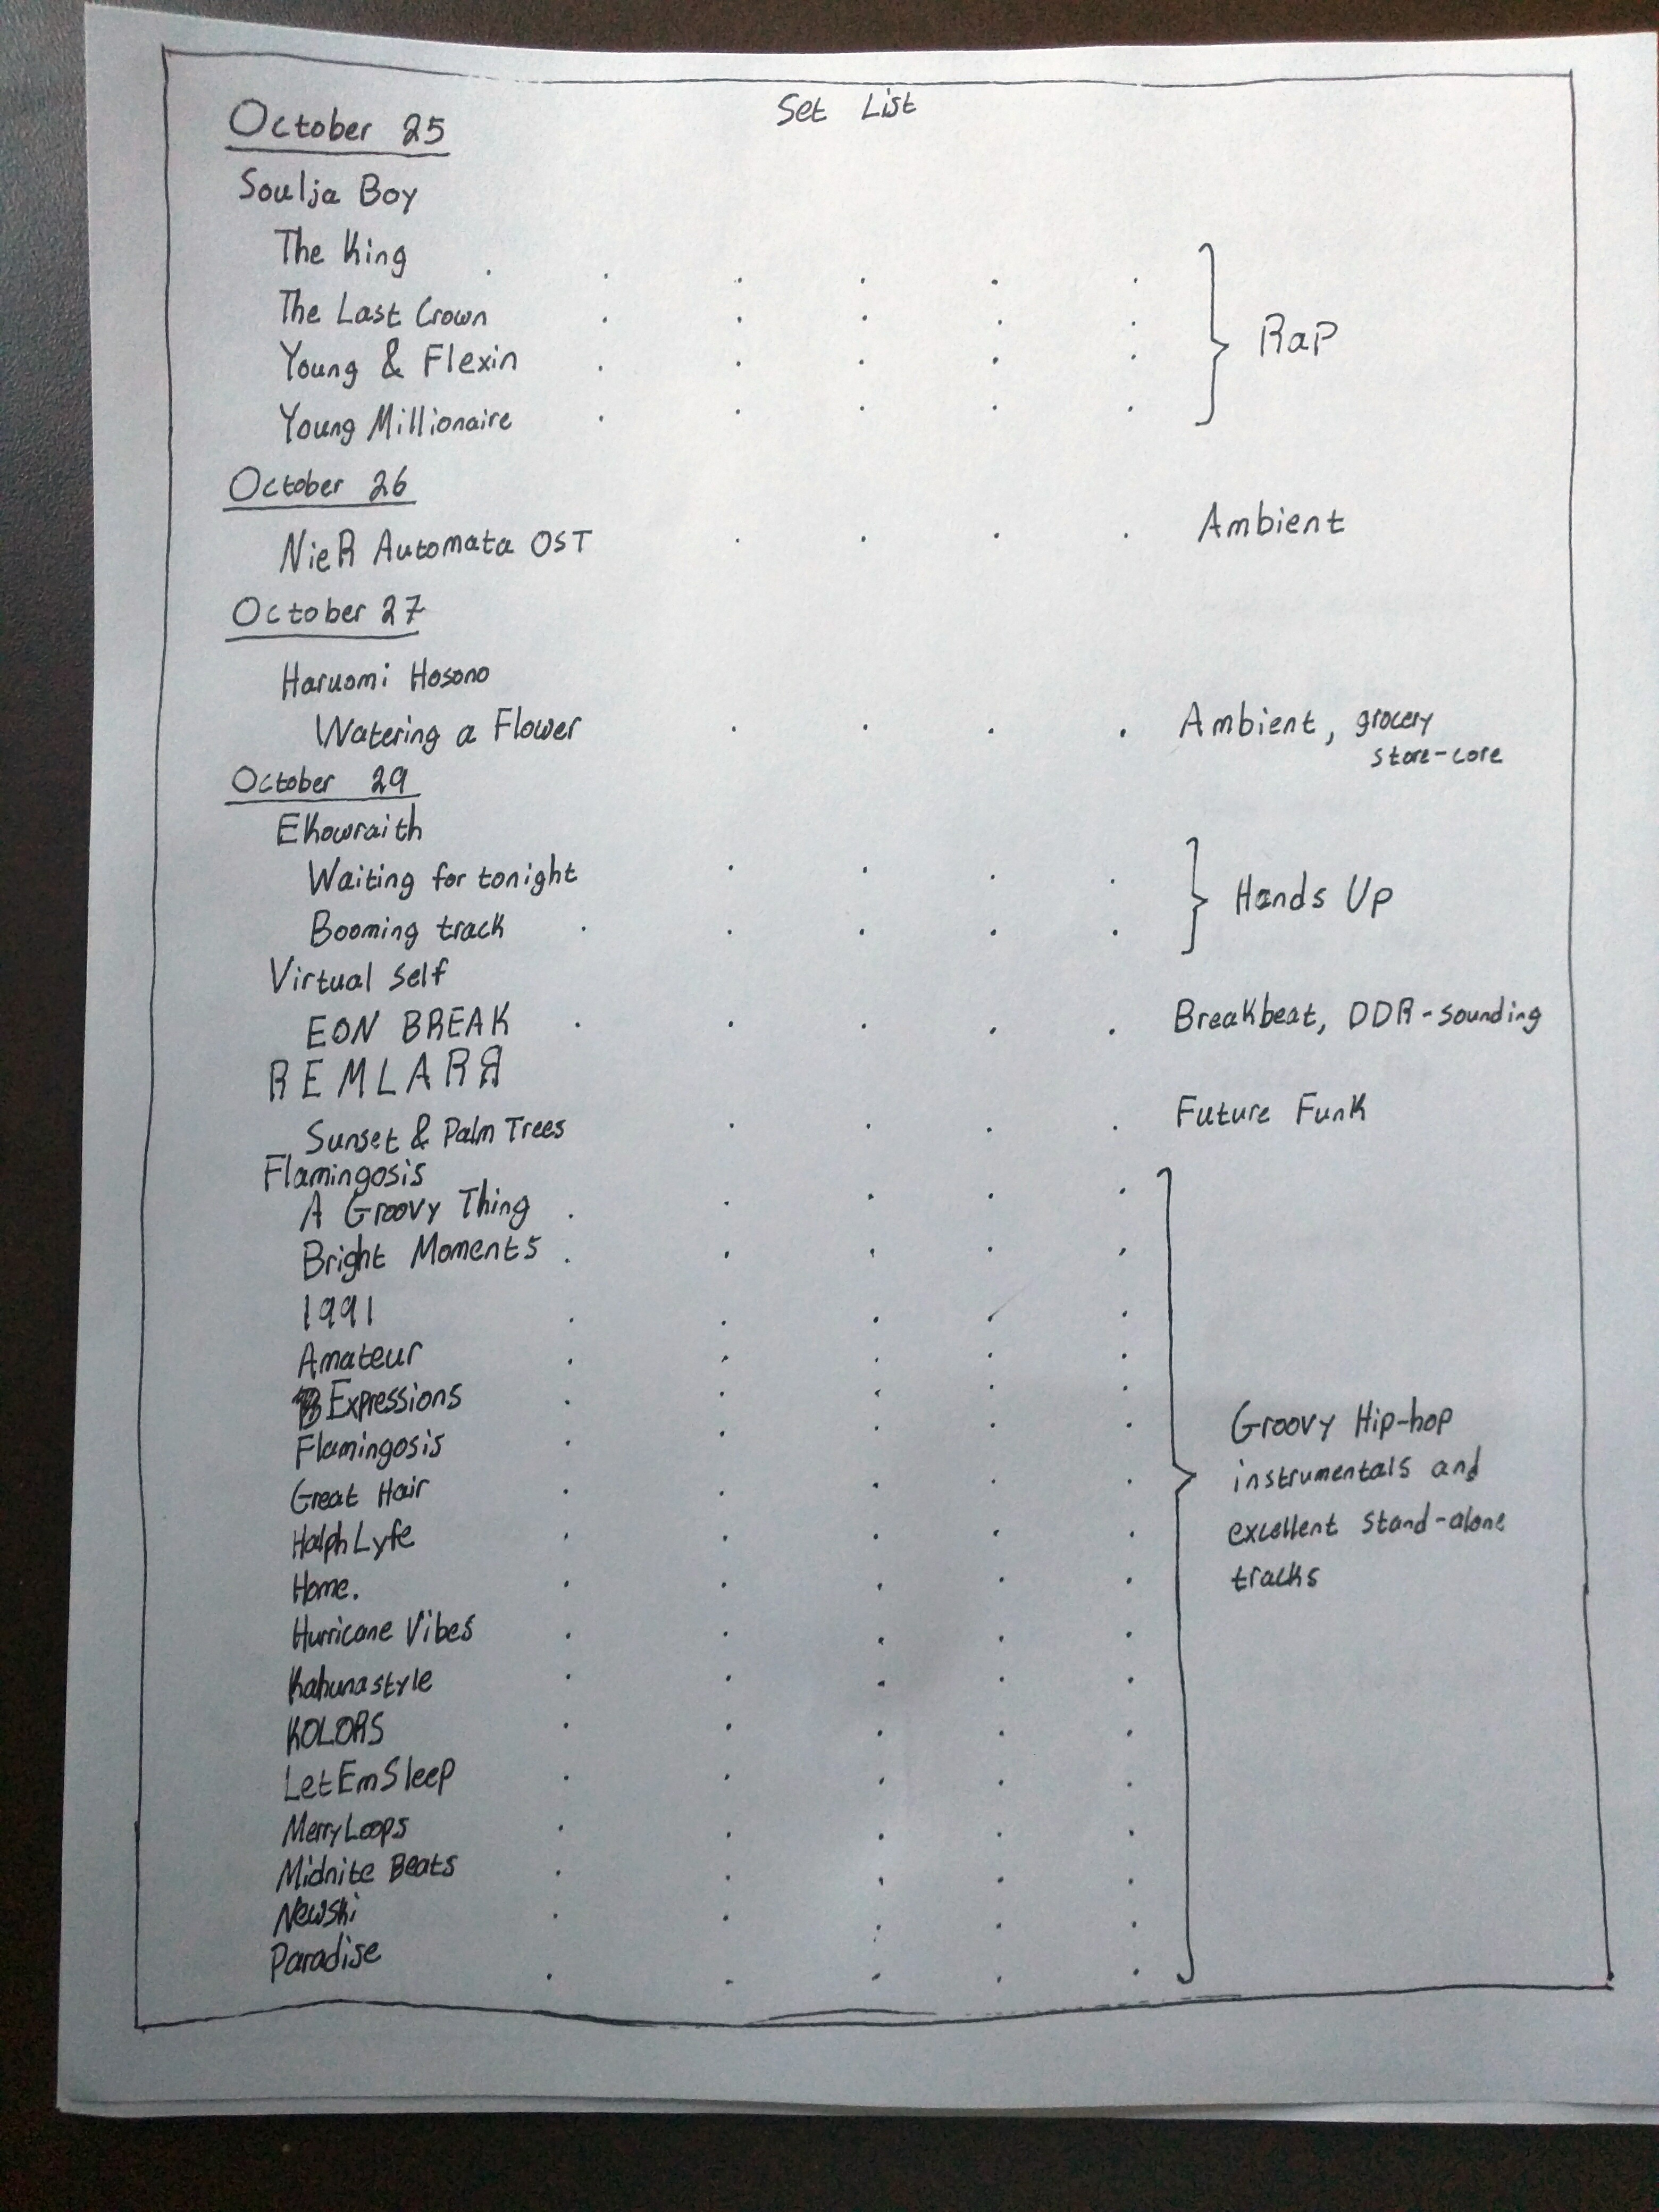 Set List
October 25
Soulja Boy
The King
The Last Crown
Young & Flexin
Young Millionaire
Rap
October 26
NieR Automata OST . . . . Ambient
October 27
Haruomi Hosono
Watering a Flower . . . . Ambient, grocery
store-core
October 29
Ekowraith
Waiting for tonight
Booming track
Hands Up
Virtual Self
EON BREAK . . . . . Breakbeat, DDR-sounding
REMLARЯ
Sunset & Palm Trees . . . . Future Funk
Flamingosis
A Groovy Thing
Bright Moments
1991
Amateur
Expressions
Flamingosis
Great Hair
Halph Lyfe
Home.
Hurricane Vibes
Kahunastyle
KOLORS
LetEmSleep
MerryLoops
Midnite Beats
Newski
Paradise
Groovy Hip-hop
instrumentals and
excellent stand-alone
tracks